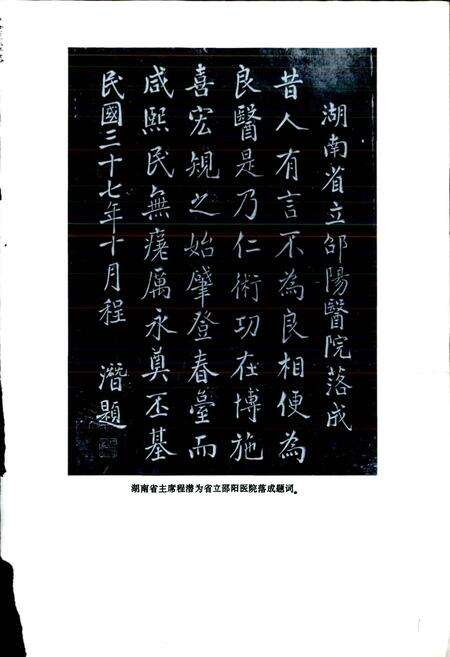 湖南省立邵陽醫院落成
昔人有言不為良相便為
良醫是乃仁術功在博施
喜宏規之始肇登春臺而
咸熙民無瘼厲永奠丕基
民國三十七年十月程 潛題
湖南省主席程潜为省立邵阳医院落成题词。